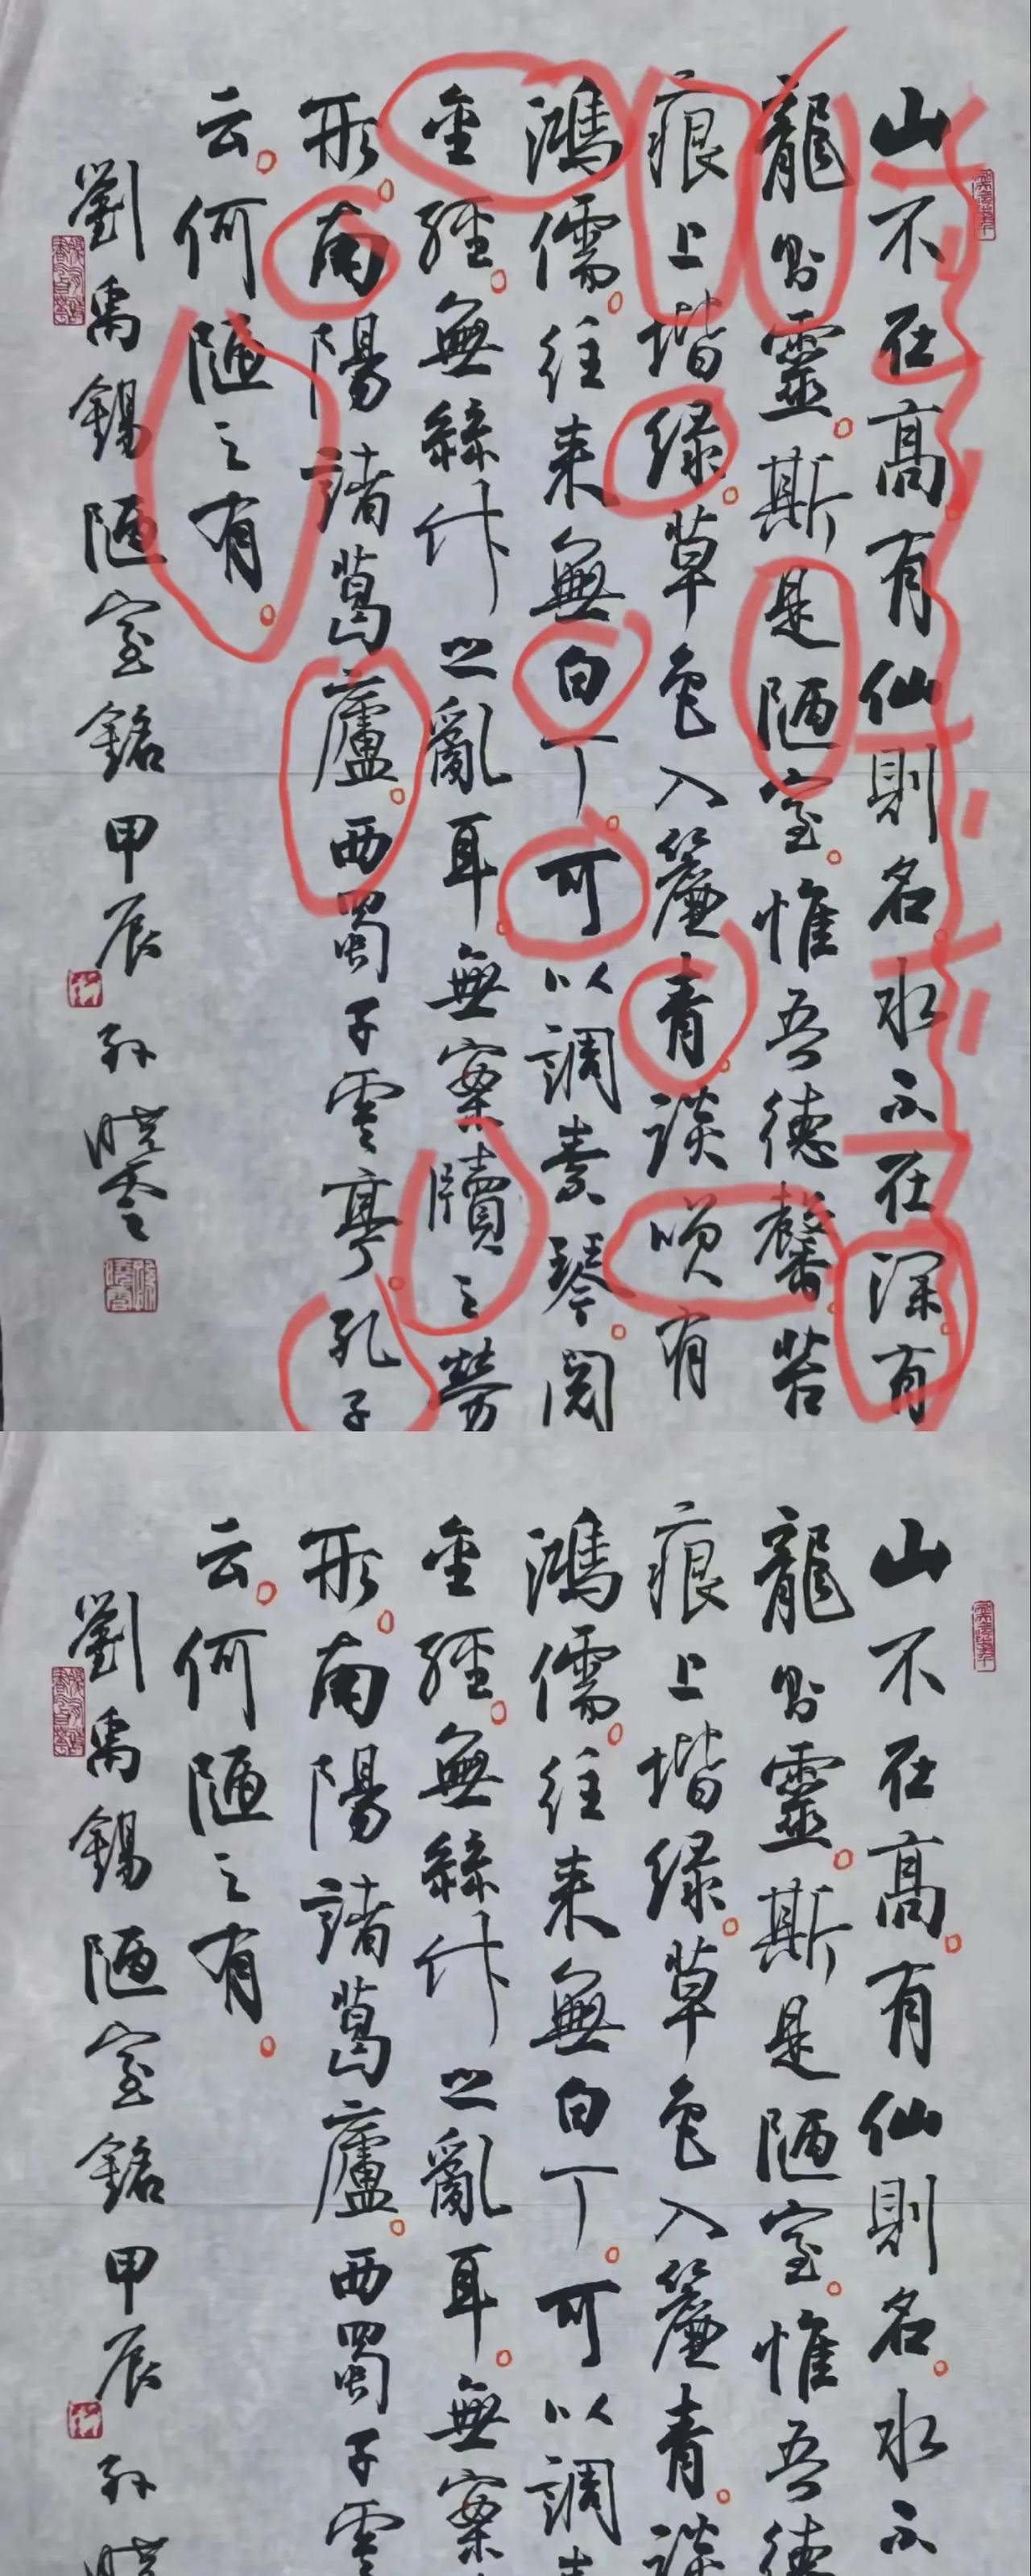 山不在高。有仙則名。水不在深。有
龍則靈。斯是陋室。惟吾德馨。苔
痕上堦绿。草色入簾青。談笑有
鴻儒。往来無白丁。可以調素琴。閱
金經。無絲竹之亂耳。無案牘之勞
形。南陽諸葛廬。西蜀子雲亭。孔子
云。何陋之有。
劉禹錫陋室銘甲辰孫曉雲
山不在高。有仙則名。水不
龍則靈。斯是陋室。惟吾德
痕上堦绿。草色入簾青。談
鴻儒。往来無白丁。可以調
金經。無絲竹之亂耳。無案
形。南陽諸葛廬。西蜀子雲
云。何陋之有。
劉禹錫陋室銘甲辰孫